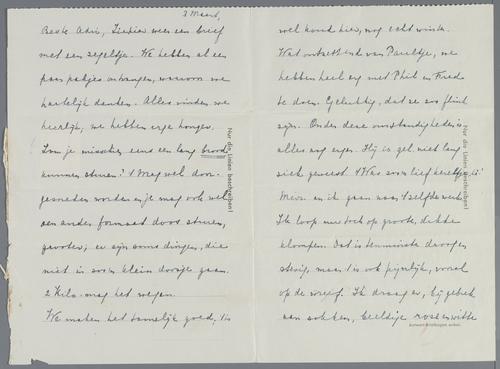 3 Maart,
Beste Adri, Hierbij weer een brief
met een zegeltje. We hebben al een
paar pakjes ontvangen, waarvoor we
hartelijk danken. Alles vinden we
heerlijk, we hebben erge honger.
Zou je misschien eens een lang brood
kunnen sturen? 't Mag wel door-
gesneden worden en je mag ook wel
een ander formaat doos sturen,
grooter; er zijn soms dingen, die
niet in zoo'n klein doosje gaan.
2 Kilo mag het wegen.
We maken het tamelijk goed, 't is
Nur die Linien beschreiben!
wel koud hier, nog echt winter.
Wat ontzettend van Paultje, we
hebben heel erg met Phil en Freds
te doen. Gelukkig, dat ze zoo flink
zijn. Onder deze omstandigheden is
alles nog erger. Hij is gel. niet lang
ziek geweest. 't Was zoo'n lief kereltje,
en ik gaan naar 't zelfde werk.
Ik loop nu toch op groote, dikke
klompen. Dat is tenminste droog en
stevig, maar 't is ook pijnlijk, vooral
op de wreef. Ik draag er, bij gebrek
aan sokken, beeldige rose-witte
Nur die Linien beschreiben!